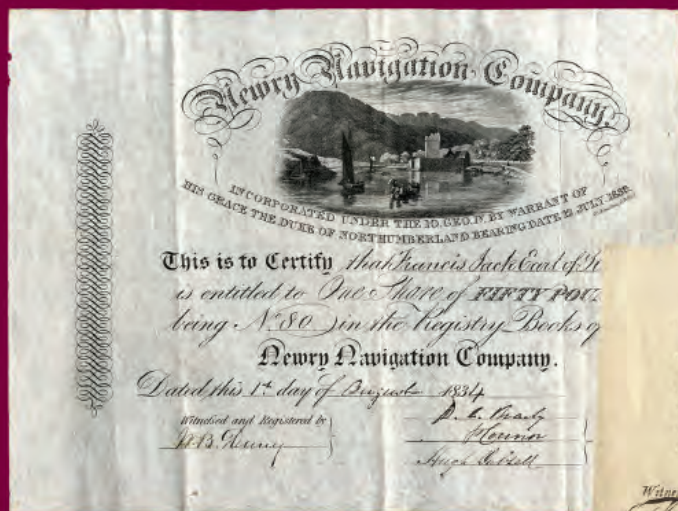 Newry Navigation Company.
INCORPORATED UNDER THE 10. GEO. IV. BY WARRANT OF
HIS GRACE THE DUKE OF NORTHUMBERLAND BEARING DATE JULY
This is to Certify that Francis Jack Earl of
is entitled to One Share of FIFTY POU
being No. 80 in the Registry Books of
Newry Navigation Company.
Dated this 1st day of August 1834
Witnessed and Registered by
Hugh
Witne